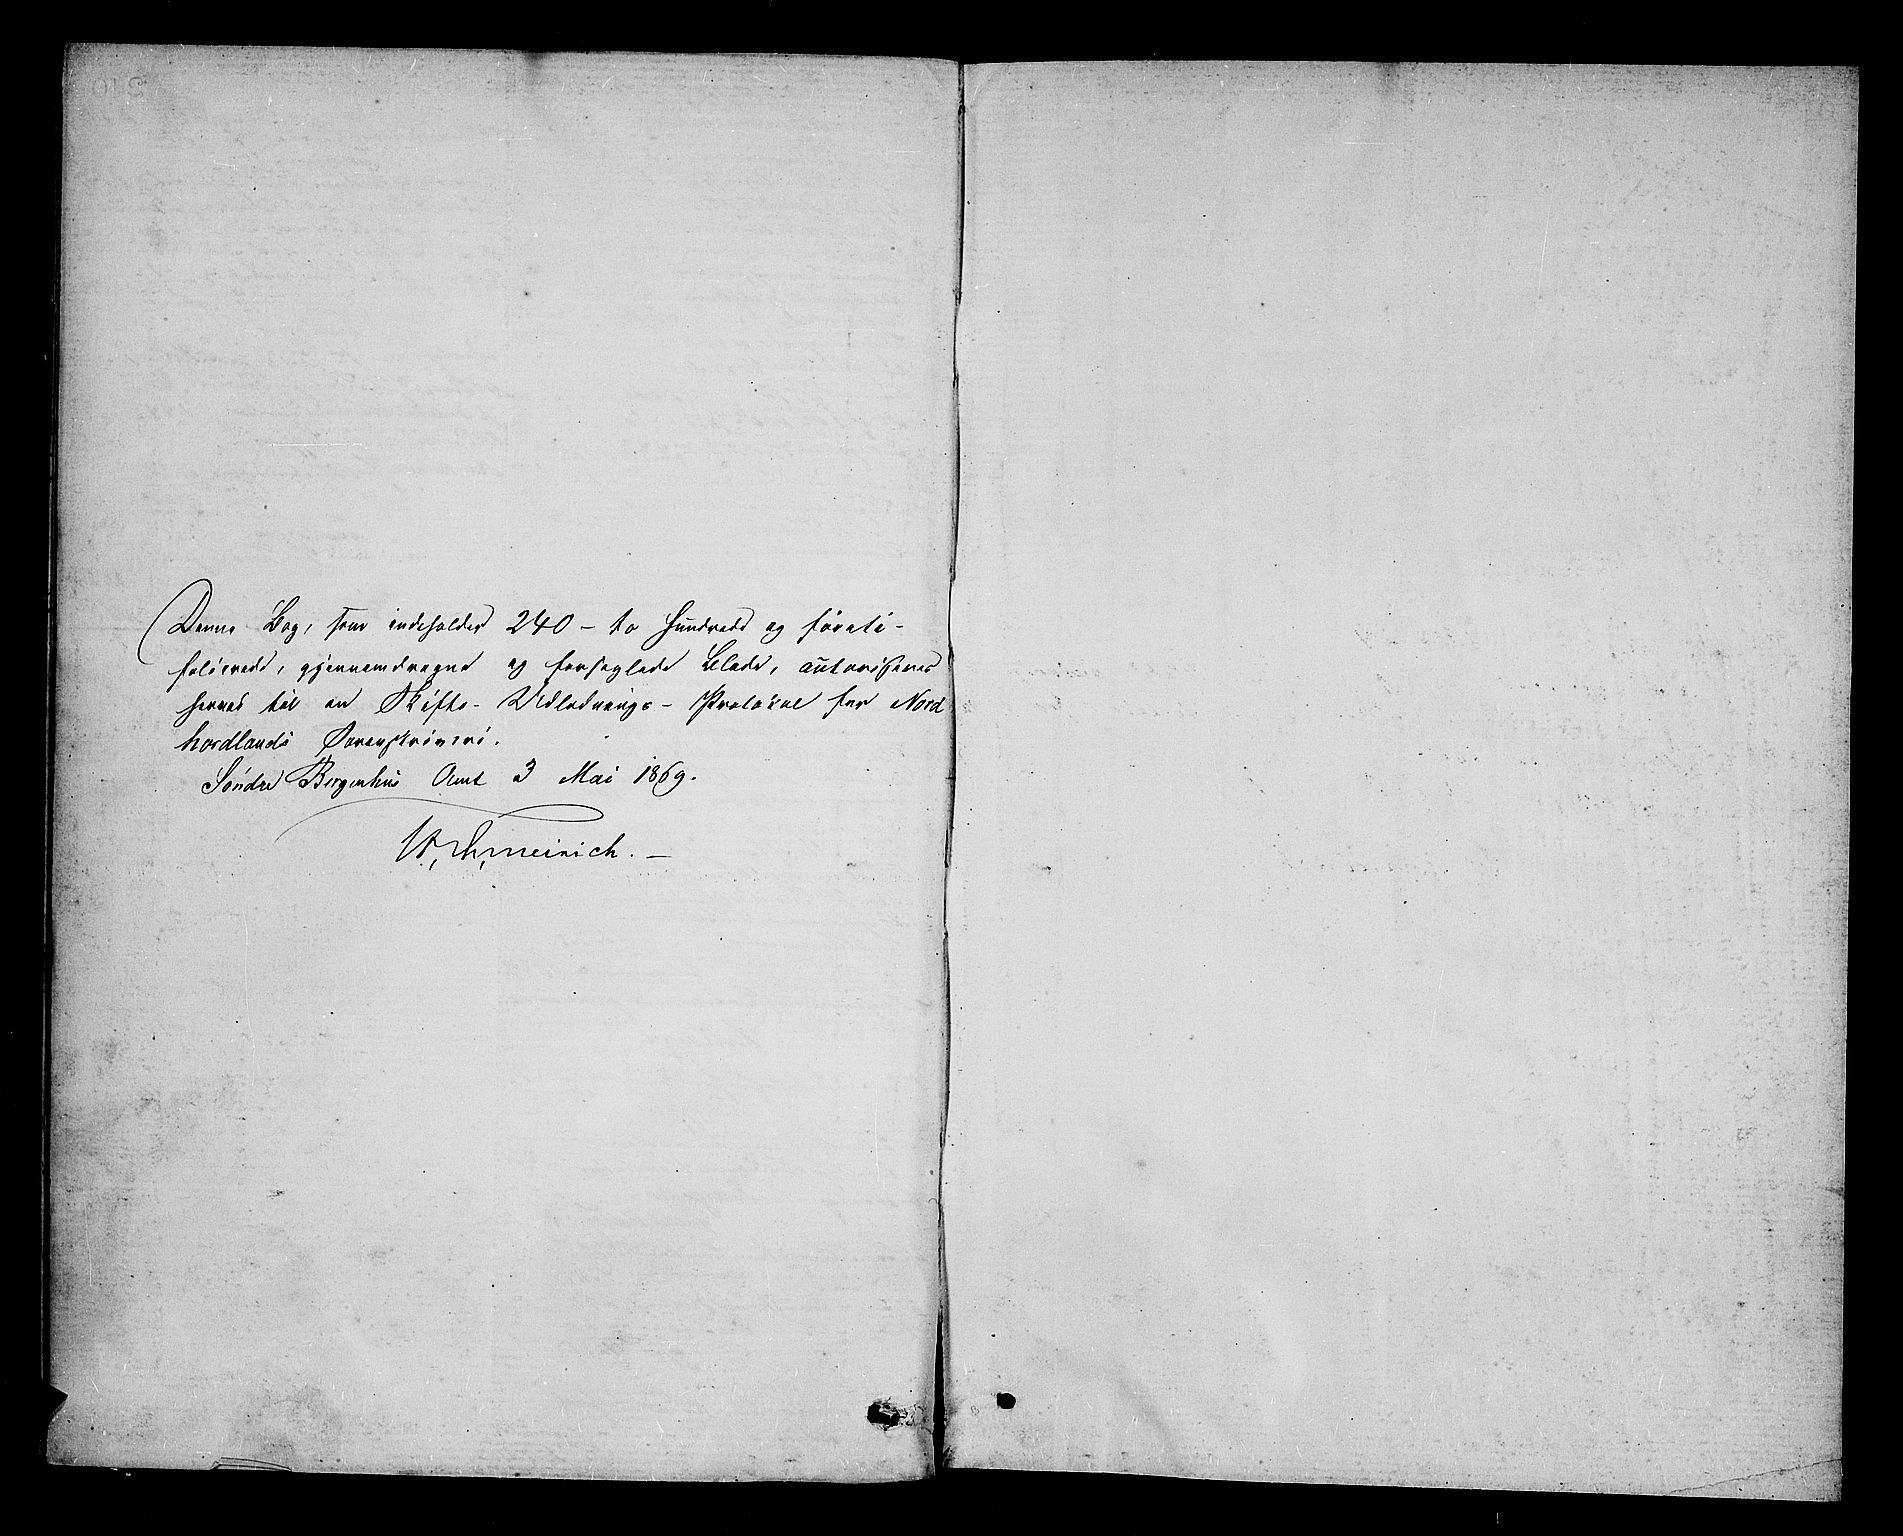 Denne Bog, som indeholder 240 – to Hundrede og förreti –
folierede, gjennemdragne og forseglede Blade, autoriseres
herved til en Skifte- Udlodnings- Protokol for Nord
hordlands Sorenskriveri.
Söndre Bergenhus Amt 3 Mai 1869.